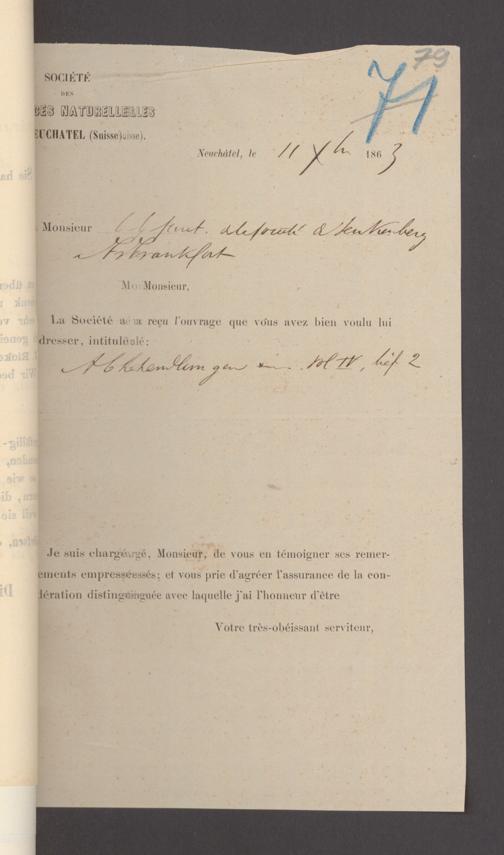 79
71
SOCIÉTÉ
DES
CES NATURELLES
EUCHATEL (Suisse).
Neuchâtel, le 11 Xbr 1863
Monsieur
à Francfort
Monsieur,
La Société a reçu l'ouvrage que vous avez bien voulu lui
dresser, intitulé:
Vol IV, lief 2
Je suis chargé, Monsieur, de vous en témoigner ses remer-
ements empressés; et vous prie d'agréer l'assurance de la con-
dération distinguée avec laquelle j'ai l'honneur d'être
Votre très-obéissant serviteur,